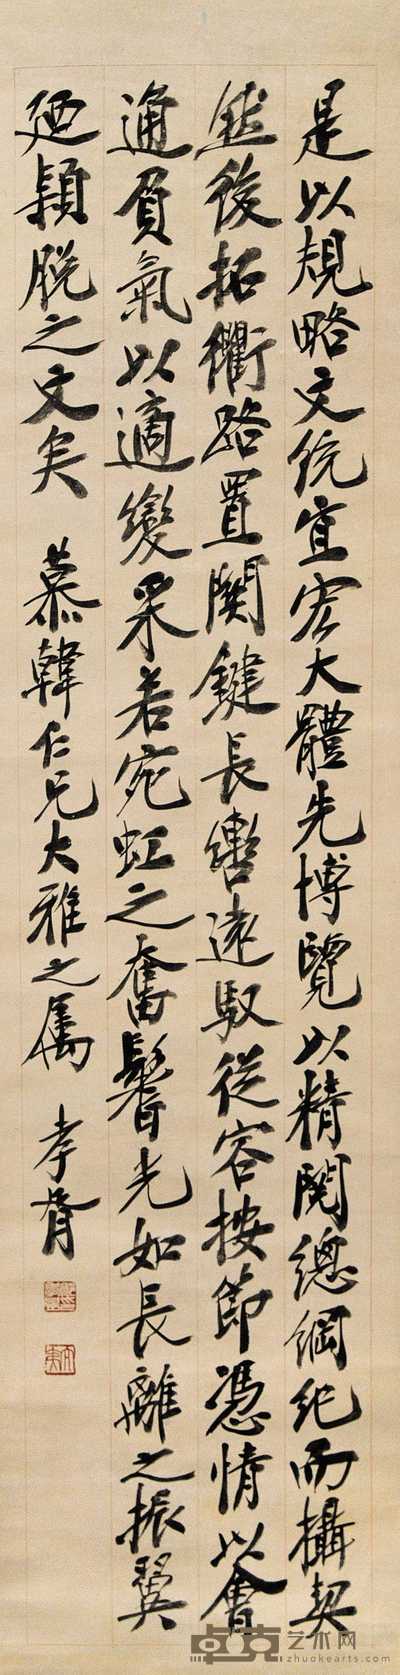 是以規略文統宜宏大體先博覽以精閱總綱紀而攝契
然後拓衢路置關鍵長轡遠馭從容按節憑情以會
通負氣以適變采若宛虹之奮鬐光如長離之振翼
迺穎脫之文矣 慕韓仁兄大雅之屬 孝胥
卓克艺术网
zhuokearts.com